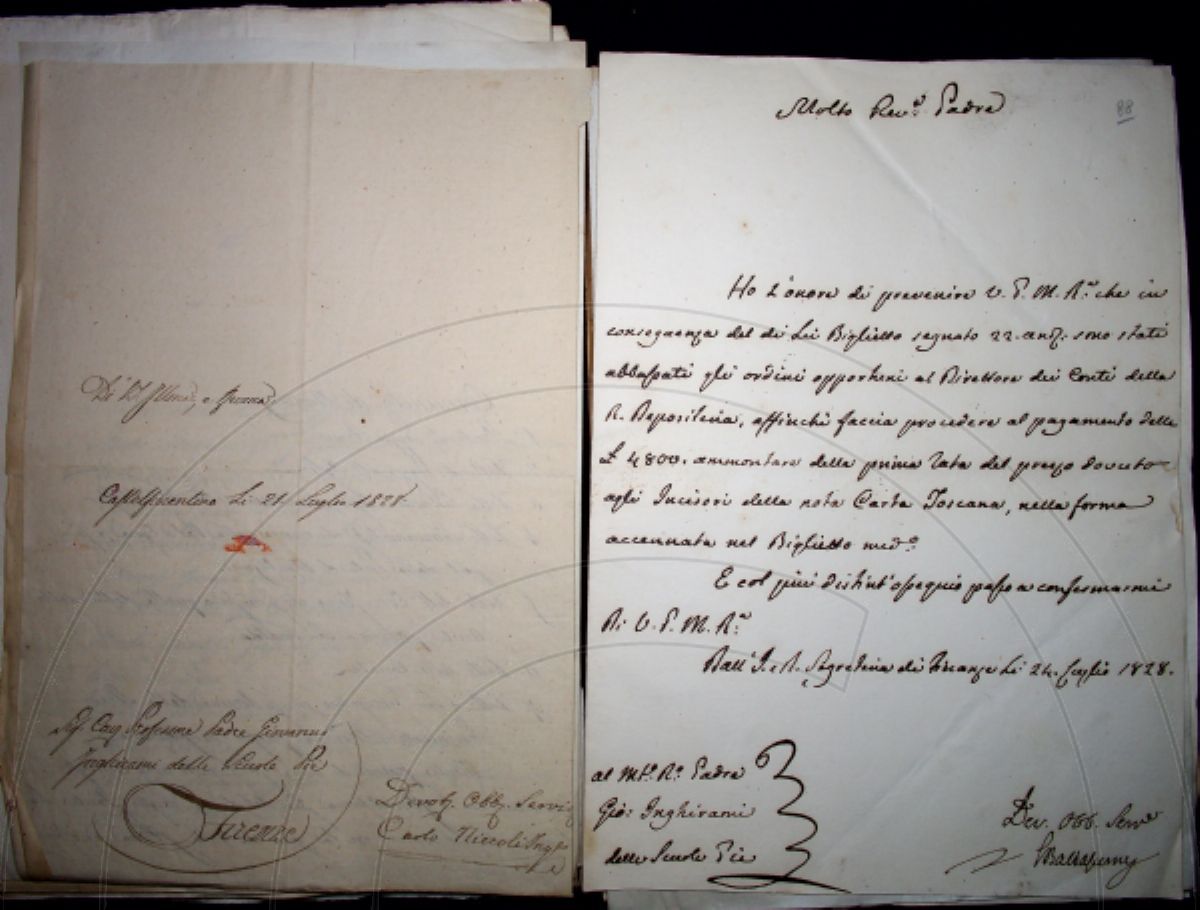 Di V. S. Illma, e
Castelfiorentino li 21 Luglio 1828
Sig. Cav. Professore Padre Giovanni
Inghirami delle Scuole Pie
Firenze
Devot. Obb. Servit.
Carlo Niccoli Ing.
88
Molto Rev.do Padre
Ho l'onore di prevenire V. P. M. R.a che in
conseguenza del di Lei Biglietto segnato 22. and. sono stati
abbassati gli ordini opportuni al Direttore dei Conti della
R. Depositeria, affinchè faccia procedere al pagamento delle
£ 4800. ammontare della prima rata del prezzo dovuto
agli Incisori della nota Carta Toscana, nella forma
accennata nel Biglietto med.o
E col più distint'ossequio passo a confermarmi
Di V. P. M. R.a
Dall'I. e R. Segreteria di Finanze li 24. Luglio 1828.
al M.to R.o Padre
Gio: Inghirami
delle Scuole Pie
Dev. Obb. Serv.e